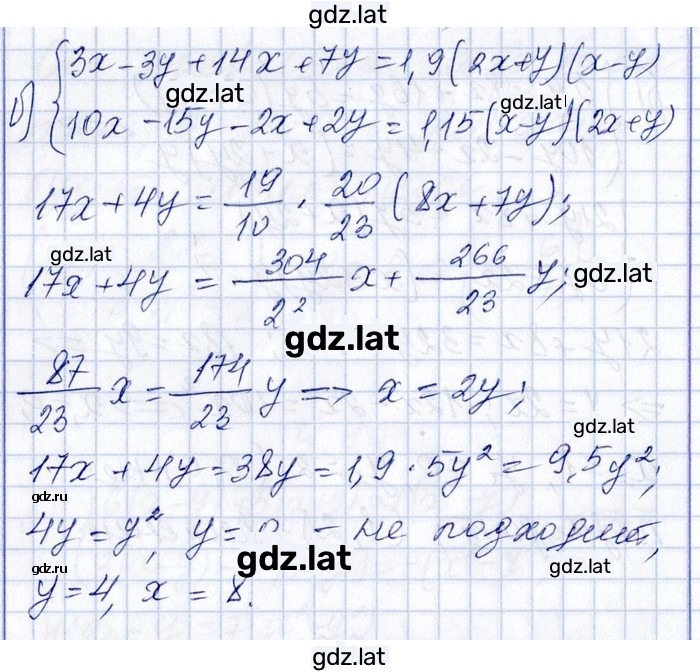 gdz.lat
б) { 3x - 3y + 14x + 7y = 1,9(2x+y)(x-y)
gdz.lat gdz.lat
10x - 15y - 2x + 2y = 1,15(x-y)(2x+y)
17x + 4y = 19/10 · 20/23 (8x + 7y);
gdz.lat
17x + 4y = 304/23 x + 266/23 y; gdz.lat
gdz.lat
87/23 x = 174/23 y => x = 2y;
gdz.lat
17x + 4y = 38y = 1,9 · 5y² = 9,5y²;
gdz.ru
4y = y², y = - не подходит,
gdz.lat gdz.lat
gdz.ru
y = 4, x = 8.
gdz.lat